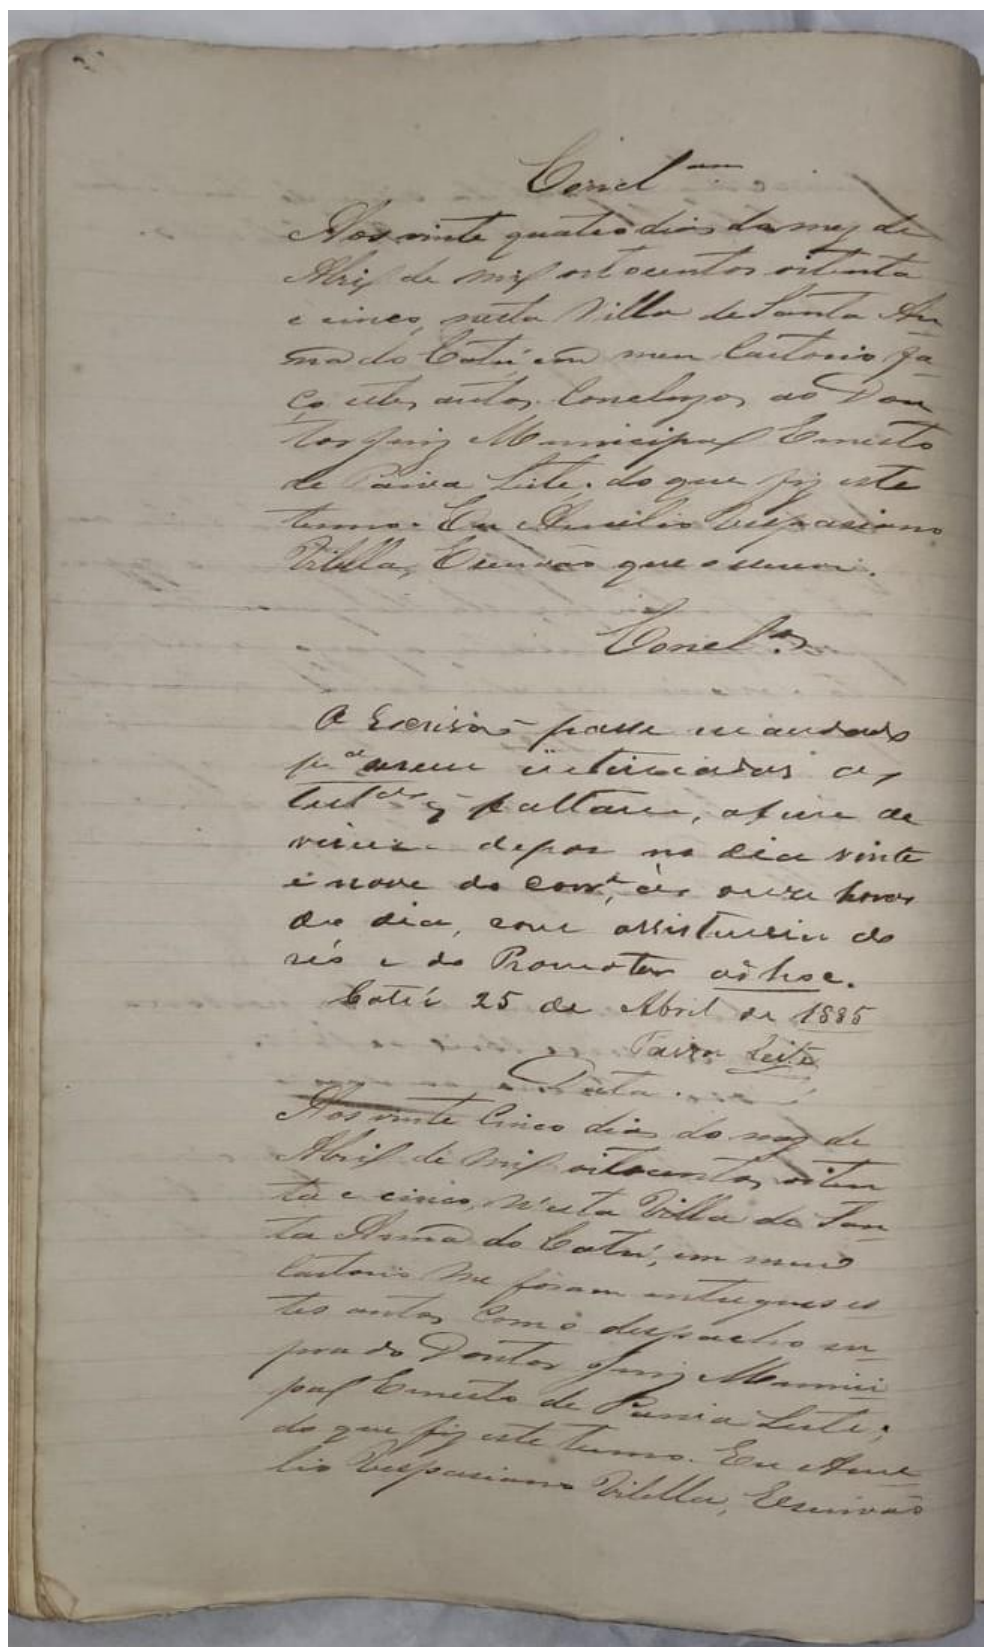 Concl.am
Aos vinte quatro dias do mez de
Abril de mil oitocentos oitenta
e cinco, nesta Villa de Santa An-
na do Catú, em meu Cartorio fa-
ço estes autos Conclusos ao Dou
tor Juiz Municipal Ernesto
de Paiva Leite; do que fiz este
termo. Eu Aurelio Vespasiano
Vilella, Escrivão que escrevi.
Concl.os
O Escrivão passe mandado
p.a serem intimadas as
test.as q̃ faltam, afim de
virem depor no dia vinte
e nove do corr.e, ás onze horas
do dia, com assistencia do
réo e do Promotor ad hoc.
Catú 25 de Abril de 1885
Paiva Leite
Data.
Aos vinte Cinco dias do mez de
Abril de mil oitocentos oiten
ta e cinco, n'esta Villa de San
ta Anna do Catú, em meu
Cartorio me foram entregues es
tes autos com o despacho su-
pra do Doutor Juiz Munici
pal Ernesto de Paiva Leite;
do que fiz este termo. Eu Aure
lio Vespasiano Vilella, Escrivão